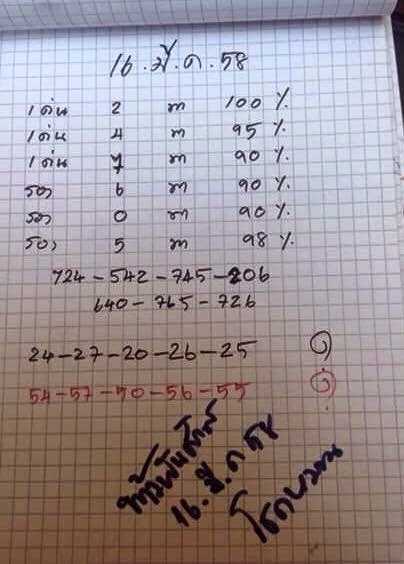 16.มี.ค.58
เด่น 2 ท 100 %
เด่น 4 ท 95 %
เด่น 7 ท 90 %
รอง 6 ท 90 %
รอง 0 ท 90 %
รอง 5 ท 98 %
724-542-745-206
640-765-726
24-27-20-26-25
54-57-50-56-55
16.มี.ค 58